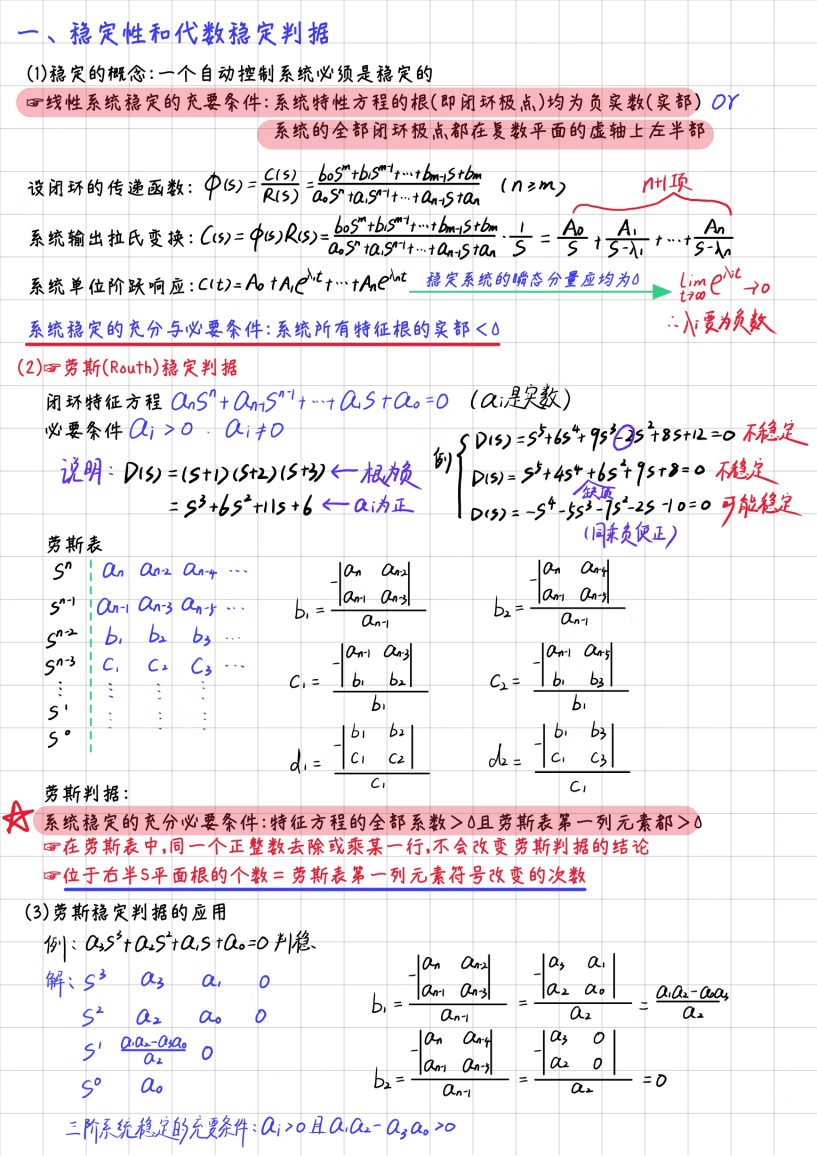 一、稳定性和代数稳定判据
(1)稳定的概念:一个自动控制系统必须是稳定的
☞线性系统稳定的充要条件:系统特性方程的根(即闭环极点)均为负实数(实部) or
系统的全部闭环极点都在复数平面的虚轴上左半部
设闭环的传递函数: Φ(s) = C(s)/R(s) = (b₀Sᵐ+b₁Sᵐ⁻¹+…+bₘ₋₁S+bₘ)/(a₀Sⁿ+a₁Sⁿ⁻¹+…+aₙ₋₁S+aₙ) (n≥m) n+1项
系统输出拉氏变换: C(s) = Φ(s)R(s) = (b₀Sᵐ+b₁Sᵐ⁻¹+…+bₘ₋₁S+bₘ)/(a₀Sⁿ+a₁Sⁿ⁻¹+…+aₙ₋₁S+aₙ) · 1/S = A₀/S + A₁/(S-λ₁) + … + Aₙ/(S-λₙ)
系统单位阶跃响应: C(t) = A₀+A₁e^λ₁t+…+Aₙe^λₙt 稳定系统的瞬态分量应均为0 lim t→∞ e^λit →0
∴λi要为负数
系统稳定的充分与必要条件:系统所有特征根的实部<0
(2)☞劳斯(Routh)稳定判据
闭环特征方程 aₙSⁿ+aₙ₋₁Sⁿ⁻¹+…+a₁S+a₀=0 (ai是实数)
必要条件 ai>0 . ai≠0
例 { D(s) = S⁵+6S⁴+9S³-2S²+8S+12=0 不稳定
说明: D(s) = (S+1)(S+2)(S+3) ← 根为负
D(s) = S⁵+4S⁴+6S²+9S+8=0 不稳定
缺项
= S³+6S²+11S+6 ← ai为正
D(s) = -S⁴-5S³-7S²-2S-10=0 可能稳定
(同乘负便正)
劳斯表
Sⁿ aₙ aₙ₋₂ aₙ₋₄ …
Sⁿ⁻¹ aₙ₋₁ aₙ₋₃ aₙ₋₅ …
Sⁿ⁻² b₁ b₂ b₃ …
Sⁿ⁻³ C₁ C₂ C₃ …
⋮ ⋮ ⋮ ⋮
S¹ ⋮ ⋮ ⋮
S⁰
b₁ = -|aₙ aₙ₋₂; aₙ₋₁ aₙ₋₃|/aₙ₋₁ b₂ = -|aₙ aₙ₋₄; aₙ₋₁ aₙ₋₅|/aₙ₋₁
C₁ = -|aₙ₋₁ aₙ₋₃; b₁ b₂|/b₁ C₂ = -|aₙ₋₁ aₙ₋₅; b₁ b₃|/b₁
d₁ = -|b₁ b₂; C₁ C₂|/C₁ d₂ = -|b₁ b₃; C₁ C₃|/C₁
劳斯判据:
☆系统稳定的充分必要条件:特征方程的全部系数>0且劳斯表第一列元素都>0
☞在劳斯表中,同一个正整数去除或乘某一行,不会改变劳斯判据的结论
☞位于右半S平面根的个数=劳斯表第一列元素符号改变的次数
(3)劳斯稳定判据的应用
例: a₃S³+a₂S²+a₁S+a₀=0 判稳
解: S³ a₃ a₁ 0
S² a₂ a₀ 0
S¹ (a₁a₂-a₃a₀)/a₂ 0
S⁰ a₀
b₁ = -|aₙ aₙ₋₂; aₙ₋₁ aₙ₋₃|/aₙ₋₁ = -|a₃ a₁; a₂ a₀|/a₂ = (a₁a₂-a₀a₃)/a₂
b₂ = -|aₙ aₙ₋₄; aₙ₋₁ aₙ₋₅|/aₙ₋₁ = -|a₃ 0; a₂ 0|/a₂ =0
三阶系统稳定的充要条件: ai>0且a₁a₂-a₃a₀>0